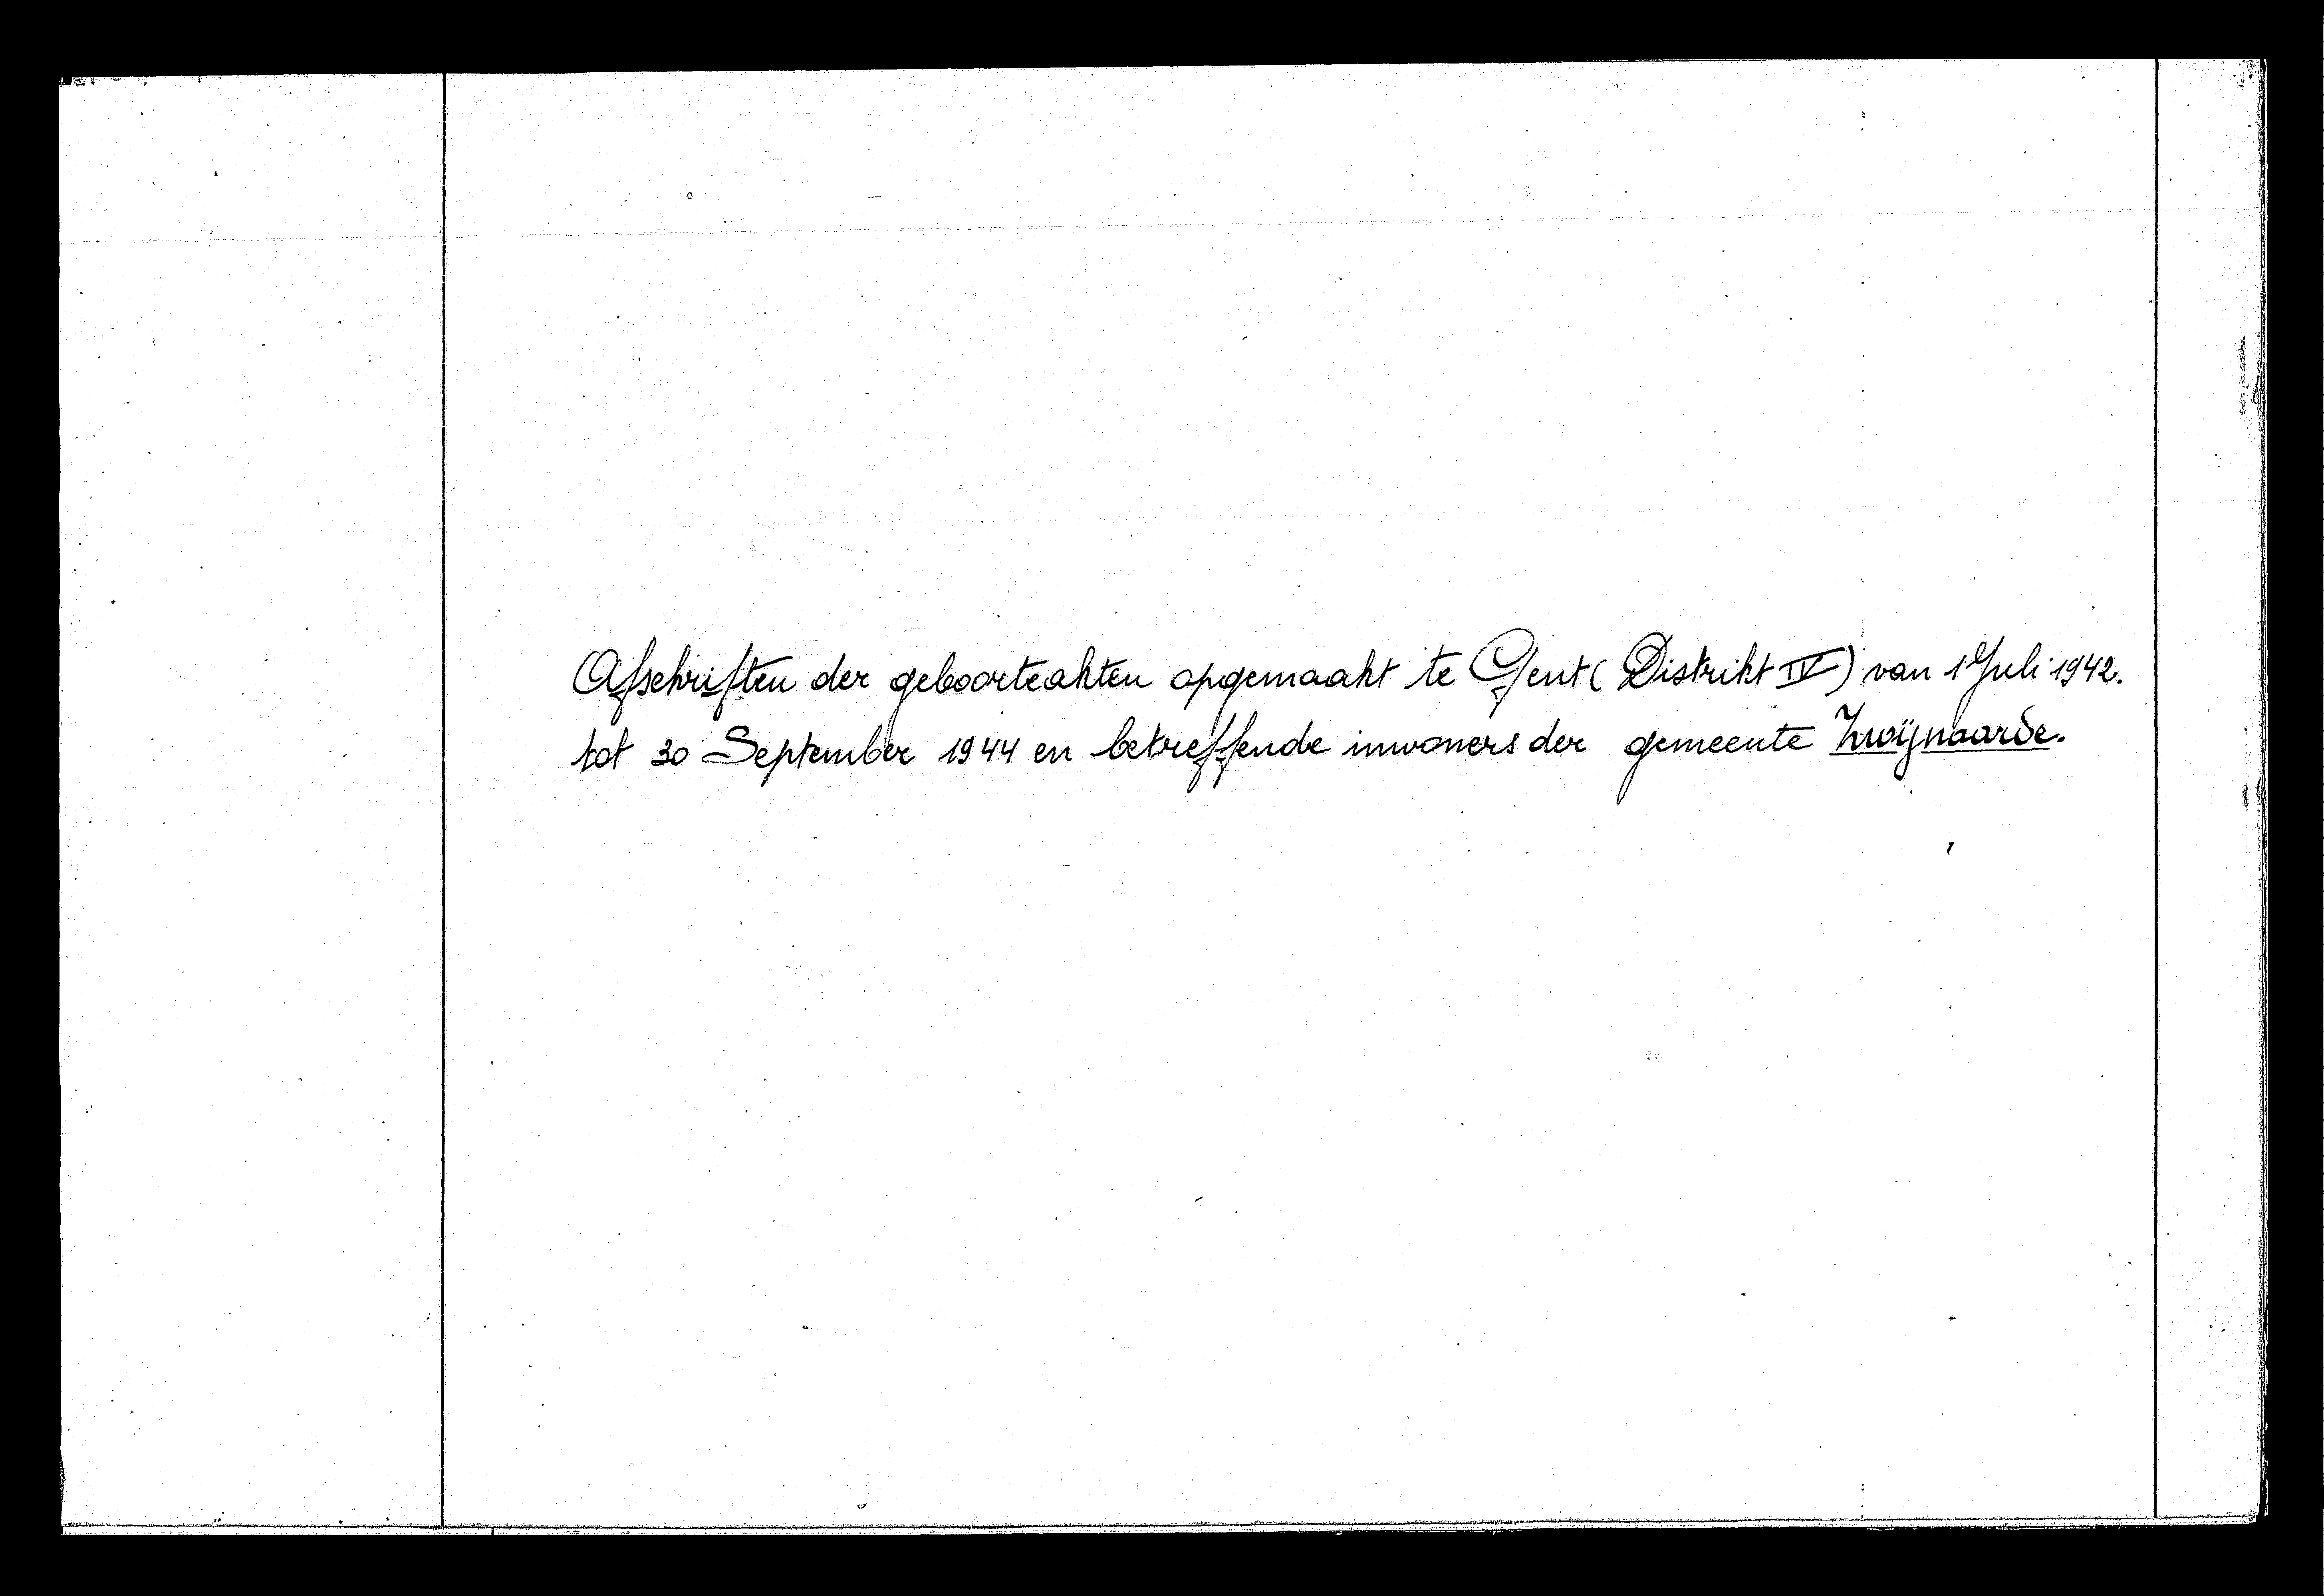 Afschriften der geboorteakten opgemaakt te Gent (Distrikt IV) van 1 Juli 1942.
tot 30 September 1944 en betreffende inwoners der gemeente Zwijnaarde.